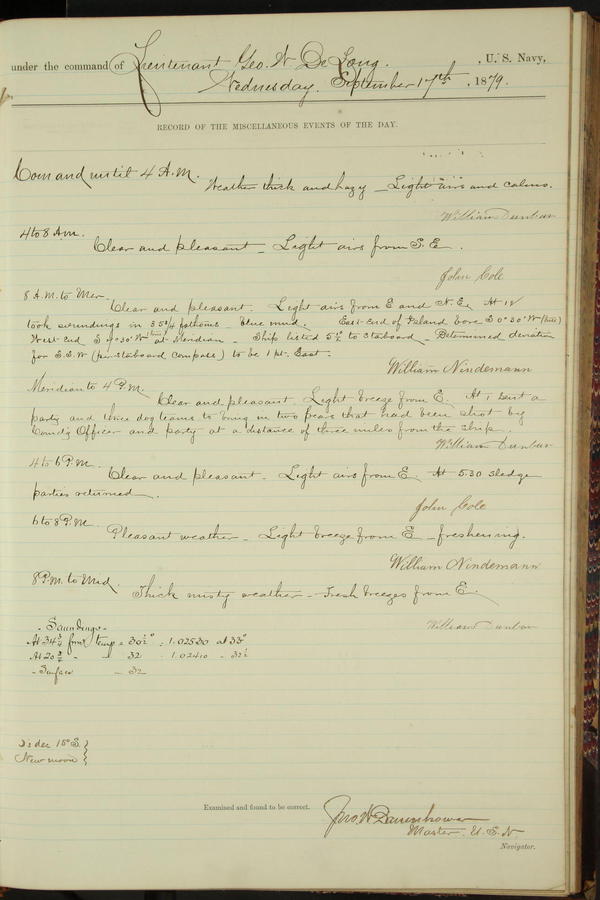 under the command of Lieutenant Geo. W. De Long, U. S. Navy,
Wednesday, September 17th, 1879.
RECORD OF THE MISCELLANEOUS EVENTS OF THE DAY.
Com and until 4 A.M.
Weather thick and hazy – Light airs and calms.
William Dunbar
4 to 8 A.M.
Clear and pleasant – Light airs from S.E.
John Cole
8 A.M. to Mer.
Clear and pleasant. Light airs from E and N.E. At 12
took soundings in 35 1/4 fathoms – blue mud. East End of Island bore S 0° 30' W (true)
West End S 9° 30' W (true) at Meridian – Ship listed 5 1/2° to starboard – Determined deviation
for S.S.W (per starboard compass) to be 1 pt. East.
William Nindemann
Meridian to 4 P.M.
Clear and pleasant. Light breeze from E. At 1 sent a
party and three dog teams to bring in two bears that had been shot by
Comdg Officer and party at a distance of three miles from the ship.
William Dunbar
4 to 6 P.M.
Clear and pleasant – Light airs from E. At 5.30 sledge
parties returned.
John Cole
6 to 8 P.M.
Pleasant weather – Light breeze from E – freshening.
William Nindemann
8 P.M. to Mid.
Thick misty weather – Fresh breezes from E.
William Dunbar
– Soundings –
At 34 3/4 fms temp = 30 1/2° : 1.02530 at 33°
At 20 " " 32 : 1.02410 " 32 1/2
– Surface – 32
dec 18° S.
New moon
Examined and found to be correct.
Jno. W. Danenhower
Master. U.S.N
Navigator.